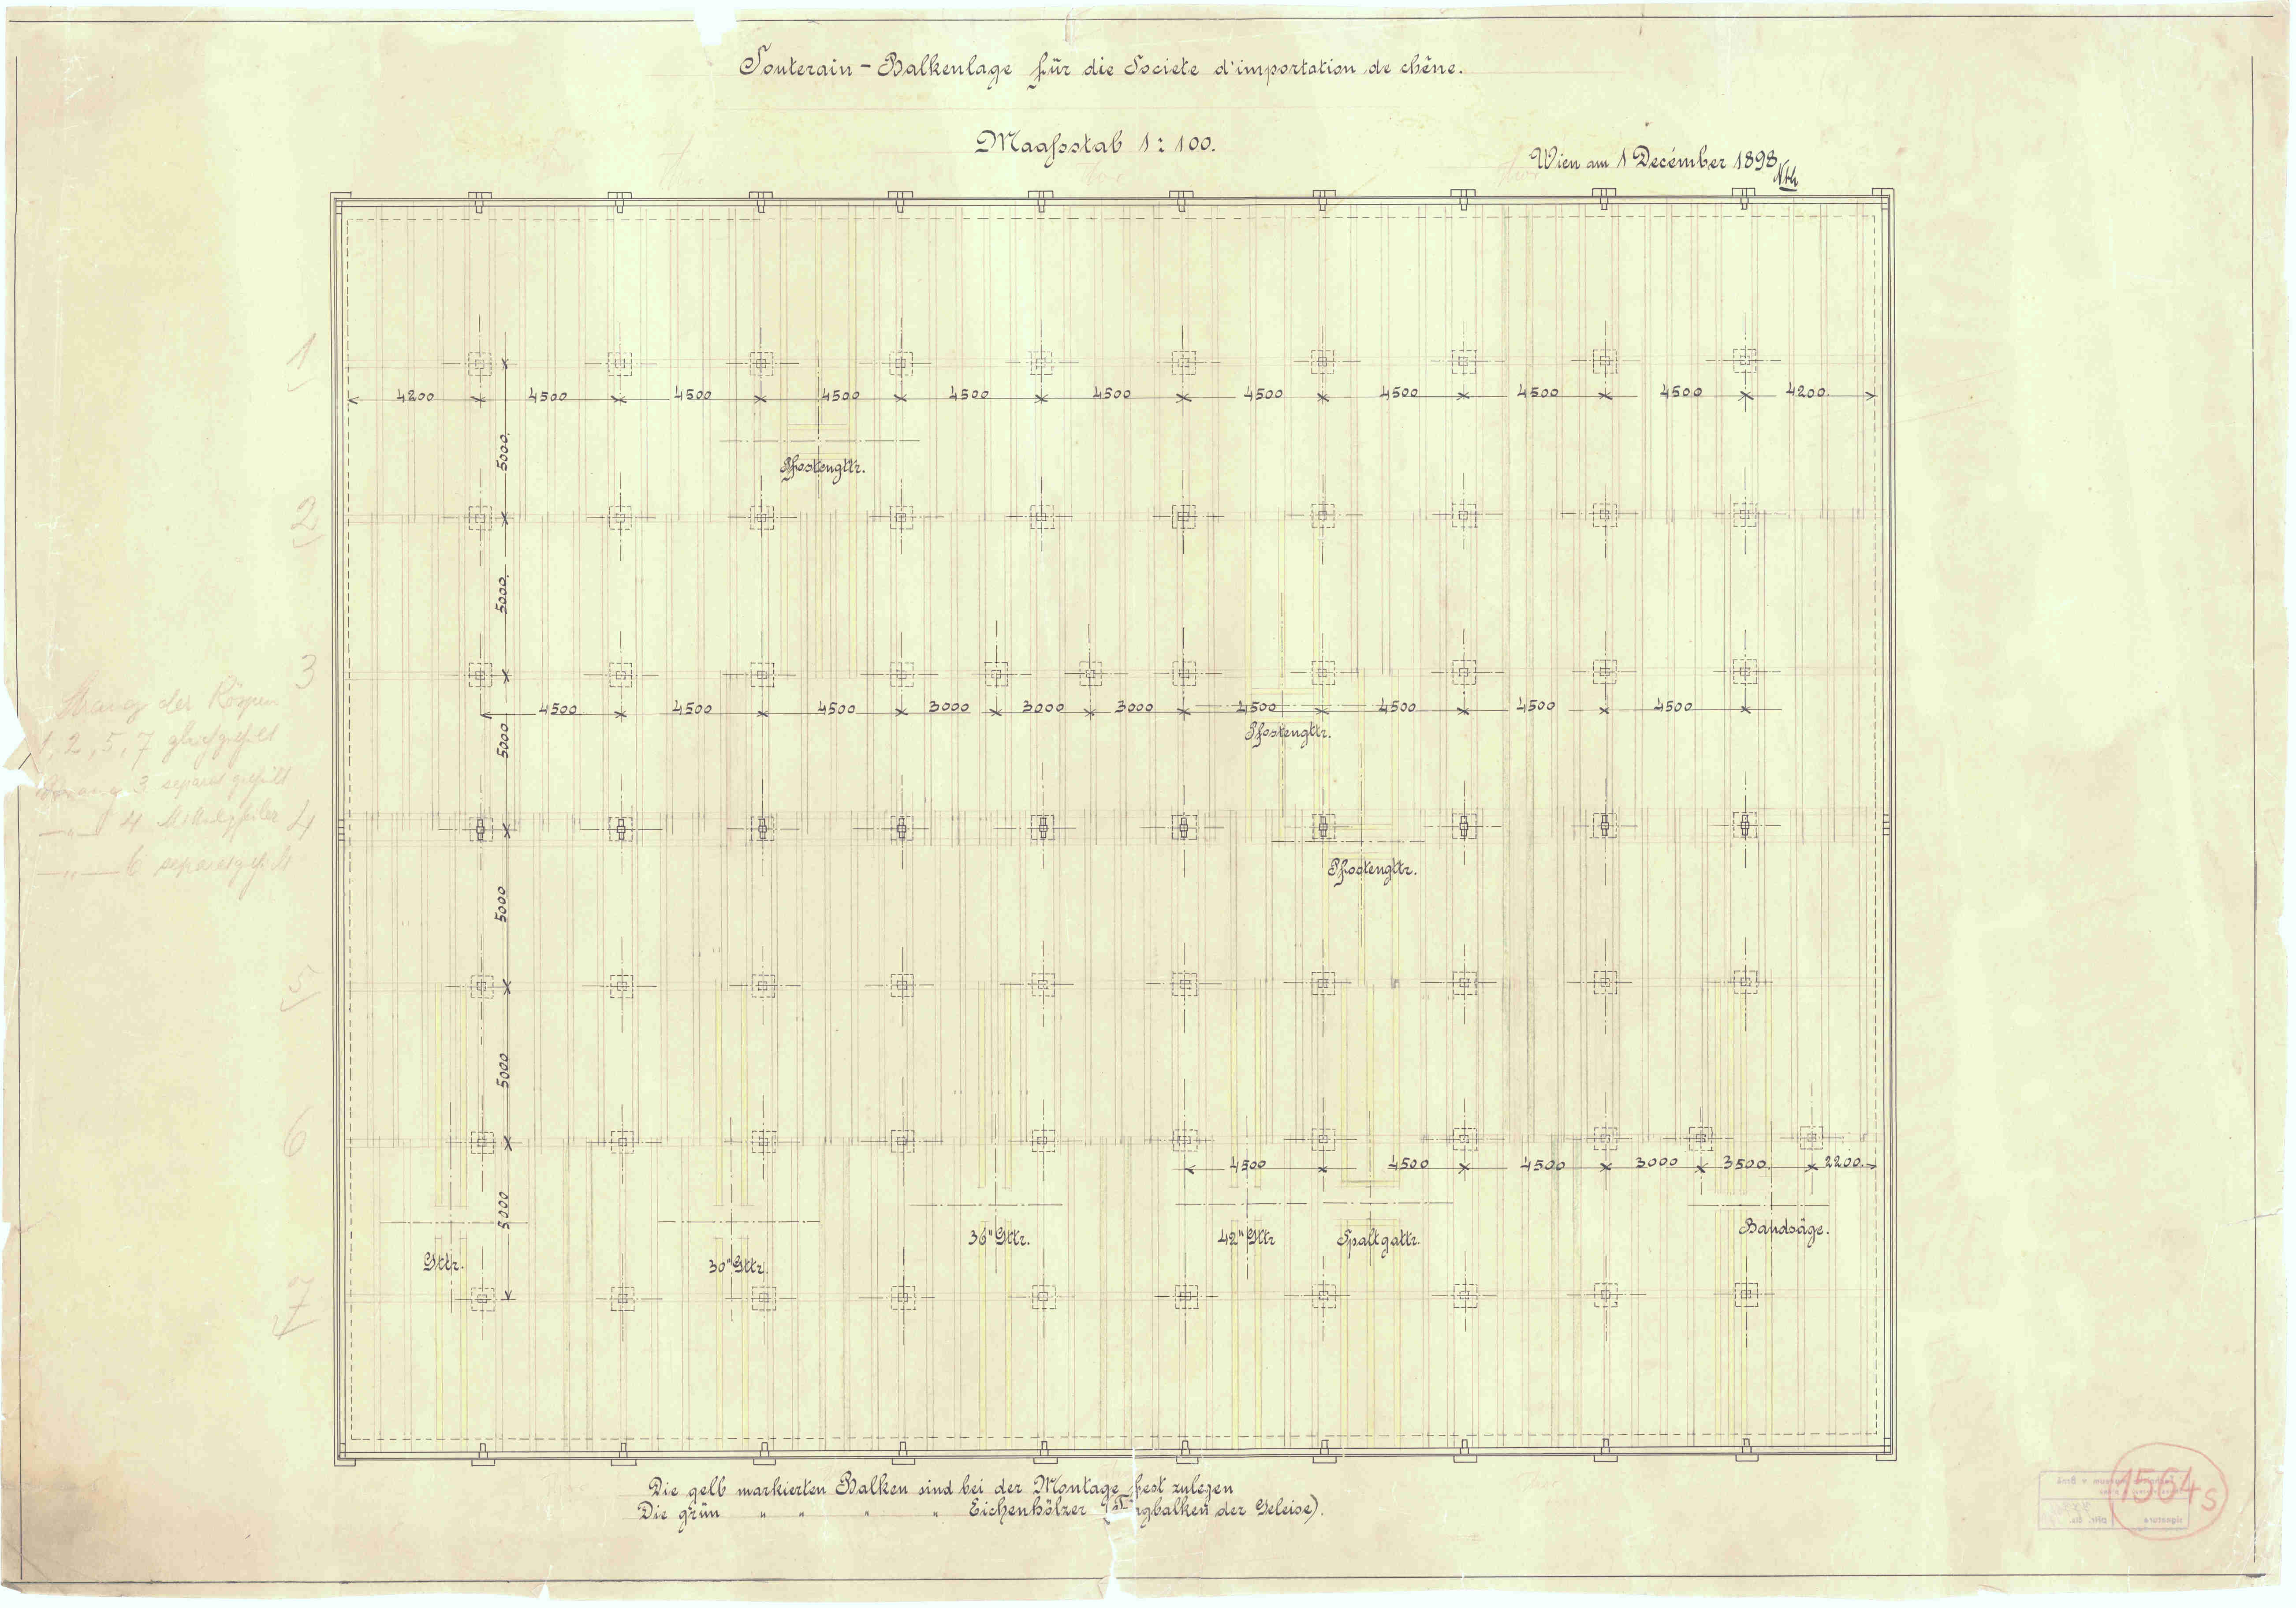 Souterain - Balkenlage für die Societe d'importation de chêne.
Maaßstab 1 : 100.
Wien am 1 Decémber 1898
1
4200 4500 4500 4500 4500 4500 4500 4500 4500 4500 4200.
5000.
Pfostengttr.
2
5000.
3
4500 4500 4500 3000 3000 3000 4500 4500 4500 4500
5000
Pfostengttr.
Strang der
1, 2, 5, 7
3 separat
4
4
6
5000
Pfostengttr.
5
5000
6
4500 4500 4500 3000 3500. 2200.
5000
Gttr.
30" Gttr.
36" Gttr.
42" Gttr
Spaltgattr.
Bandsäge.
7
Die gelb markierten Balken sind bei der Montage fest zulegen
Die grün " " " " Eichenhölzer der Geleise).
1564s